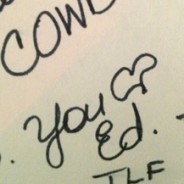 COW
you
Ed.
TLF